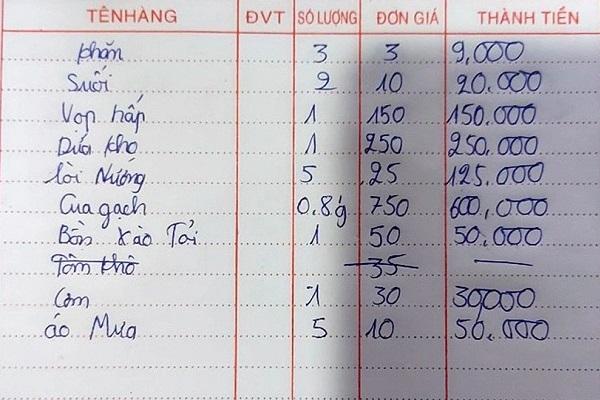 TÊN HÀNG ĐVT SỐ LƯỢNG ĐƠN GIÁ THÀNH TIỀN
khăn 3 3 9,000
Suối 2 10 20.000
Vọp hấp 1 150 150.000
Dứa kho 1 250 250.000
lòi Nướng 5 25 125.000
Cua gạch 0.8 750 600,000
Bồn xào Tỏi 1 50 50.000
Tôm khô 35 —
Cơm 1 30 30,000
áo Mưa 5 10 50.000